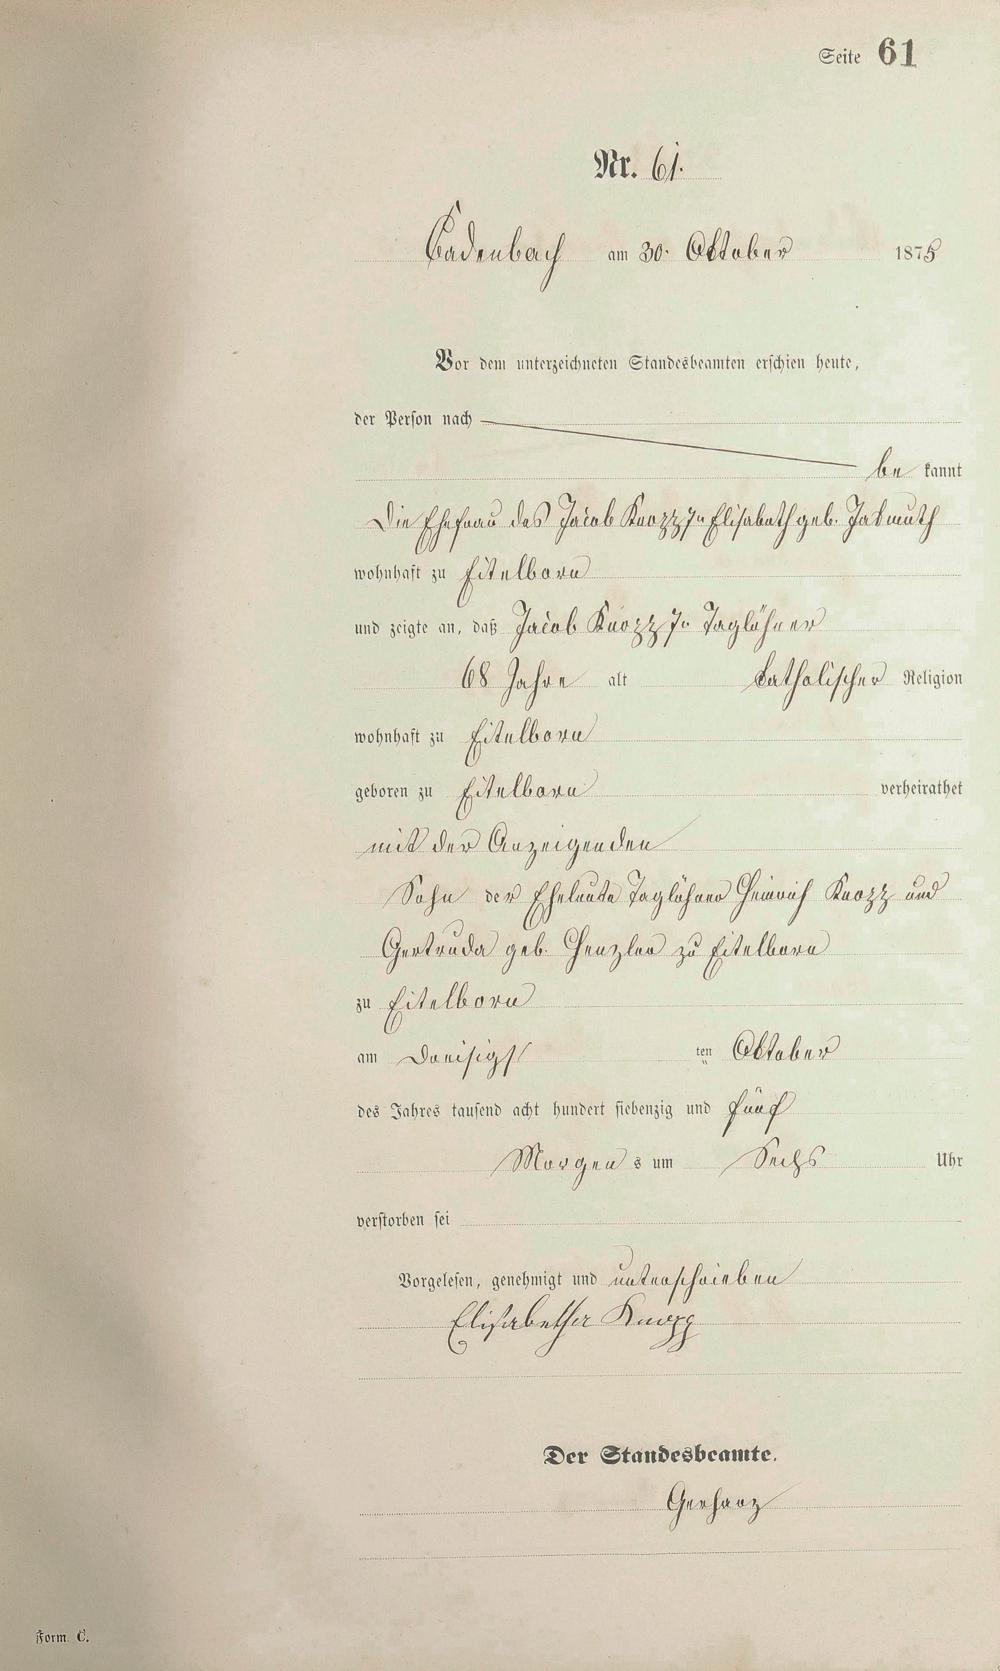 Seite 61
Nr. 61.
Cadenbach am 30. Oktober 1875
Vor dem unterzeichneten Standesbeamten erschien heute,
der Person nach
be kannt
Die Ehefrau des Jacob Knopp Elisabeth geb.
wohnhaft zu Eitelborn
und zeigte an, daß Jacob Knopp Taglöhner
68 Jahre alt katholischer Religion
wohnhaft zu Eitelborn
geboren zu Eitelborn verheirathet
mit der Anzeigenden
Sohn der Eheleute Taglöhner Heinrich Knopp und
Gertruda geb. Henzler zu Eitelborn
zu Eitelborn
am Dreisigst ten Oktober
des Jahres tausend acht hundert siebenzig und fünf
Morgen s um Sechs Uhr
verstorben sei
Vorgelesen, genehmigt und unterschrieben
Elisabetha Knopp
Der Standesbeamte.
Gerharz
Form. C.